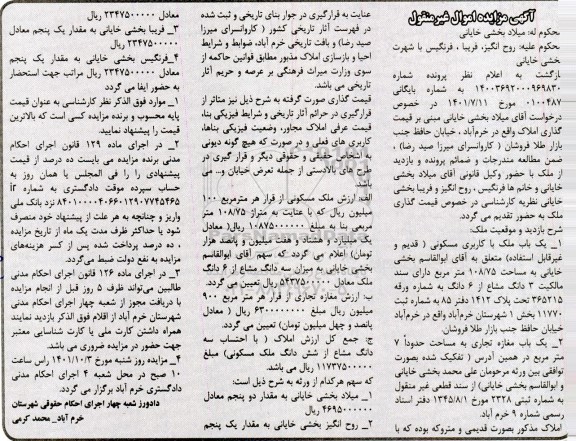 آگهی مزایده اموال غیرمنقول
محکوم له: میلاد بخشی خایانی
محکوم علیه: روح انگیز، فریبا ، فرنگیس با شهرت
خشی خایانی
بازگشت به اعلام نظر پرونده شماره
۱۴۰۰۳۶۹۲۰۰۰۹۶۹۸۳۰ به شماره بایگانی
۰۱۰۰۴۸۷ مورخ ۱۴۰۱/۷/۱۱ در خصوص
درخواست آقای میلاد بخشی خایانی مبنی بر قیمت
گذاری املاک واقع در خرم‌آباد ، خیابان حافظ جنب
بازار طلا فروشان ( کاروانسرای میرزا صید رضا) ،
ضمن مطالعه مندرجات و ضمائم پرونده و بازدید
از ملک با حضور وکیل قانونی آقای میلاد بخشی
خایانی و خانم ها فرنگیس ، روح انگیز و فریبا بخشی
خایانی نظریه کارشناسی در خصوص قیمت گذاری
ملک به حضور تقدیم می گردد.
شرح بازدید و موقعیت ملک:
۱_ یک باب ملک با کاربری مسکونی ( قدیم و
غیرقابل استفاده) متعلق به آقای ابوالقاسم بخشی
خایانی به مساحت ۱۰۸/۷۵ متر مربع دارای سند
مالکیت ۳ دانگ مشاع از ۶ دانگ به شماره ورقه
۳۶۵۲۱۵ تحت پلاک ۱۴۱۲ دفتر ۸۵ به شماره ثبت
۱۱۷۷۰ بخش ۱ شهرستان خرم‌آباد واقع در خرم‌آباد
خیابان حافظ جنب بازار طلا فروشان.
۲_ یک باب مغازه تجاری به مساحت حدوداً ۷
متر مربع در همین آدرس ( تفکیک شده بصورت
توافقی بین ورثه مرحومان علی محمد بخشی خایانی
و ابوالقاسم بخشی خایانی) از سند قطعی غیر منقول
به شماره ثبتی ۲۳۲۸ مورخ ۱۳۴۵/۸/۱ دفتر اسناد
رسمی شماره ۹ خرم آباد.
املاک مذکور بصورت قدیمی و متروکه بوده که با
عنایت به قرارگیری در جوار بنای تاریخی و ثبت شده
در فهرست آثار تاریخی کشور ( کاروانسرای میرزا
صید رضا) و بافت تاریخی خرم آباد، ضوابط و شرایط
احیا و بازسازی املاک مذبور مطابق قوانین حاکمه از
سوی وزارت میراث فرهنگی بر عرصه و حریم آثار
تاریخی می باشد.
قیمت گذاری صورت گرفته به شرح ذیل نیز متاثر از
قرارگیری در حرائم آثار تاریخی و شرایط فیزیکی بنا،
قیمت عرفی املاک مجاور، وضعیت فیزیکی بناها،
کاربری های فعلی و در صورت که هیچ گونه دیونی
به اشخاص حقیقی و حقوقی دیگر و قرار گیری در
طرح های بالادستی از جمله تعرض خیابان و... می
باشد.
الف: ارزش ملک مسکونی از قرار هر مترمربع ۱۰۰
میلیون ریال که با عنایت به متراژ ۱۰۸/۷۵ متر
مربعی بنا به مبلغ ۱۰۸۷۵۰۰۰۰۰۰ ریال( معادل
یک میلیارد و هشتاد و هفت میلیون و پانصد هزار
تومان) اعلام می گردد که سهم آقای ابوالقاسم
بخشی خایانی به میزان سه دانگ مشاع از ۶ دانگ
ملک معادل ۵۴۳۷۵۰۰۰۰۰ ریال تعیین می گردد.
ب: ارزش مغازه تجاری از قرار هر متر مربع ۹۰۰
میلیون ریال مبلغ ۶۳۰۰۰۰۰۰۰۰ ریال ( معادل
پانصد و چهل میلیون تومان) تعیین می گردد.
ج: جمع کل ارزش املاک ( با احتساب سه
دانگ مشاع از شش دانگ ملک مسکونی) مبلغ
۱۱۷۳۷۵۰۰۰۰۰ ریال می باشد.
که سهم هرکدام از ورثه به شرح ذیل است:
۱_ میلاد بخشی خایانی به مقدار دو پنجم معادل
۴۶۹۵۰۰۰۰۰۰ ریال
۲_ روح انگیز بخشی خایانی به مقدار یک پنجم
معادل ۲۳۴۷۵۰۰۰۰۰ ریال
۳_ فریبا بخشی خایانی به مقدار یک پنجم معادل
۲۳۴۷۵۰۰۰۰۰ ریال
۴_فرنگیس بخشی خایانی به مقدار یک پنجم
معادل ۲۳۴۷۵۰۰۰۰۰ ریال مراتب جهت استحضار
به حضور ایفا می گردد
۱_ موارد فوق الذکر نظر کارشناسی به عنوان قیمت
پایه محسوب و برنده مزایده کسی است که بالاترین
قیمت را پیشنهاد نمایید.
۲_ در اجرای ماده ۱۲۹ قانون اجرای احکام
مدنی برنده مزایده می بایست ده درصد از قیمت
پیشنهادی را را فی المجلس یا همان روز به
حساب سپرده موقت دادگستری به شماره ir
۸۴۰۱۰۰۰۰۴۰۶۶۰۱۲۹۰۷۷۴۵۴۶۵ نزد بانک ملی
واریز و چنانچه به هر علت از پیشنهاد خود منصرف
شود یا حداکثر ظرف مدت یک ماه از تاریخ مزایده
، ده درصد پرداخت شده پس از کسر هزینه‌های
مزایده به نفع دولت ضبط می‌گردد.
۳_ در اجرای ماده ۱۲۶ قانون اجرای احکام مدنی
طالبین می‌توانند ظرف ۵ روز قبل از انجام مزایده
با دریافت مجوز از شعبه چهار اجرای احکام مدنی
شهرستان خرم آباد از اقلام فوق الذکر بازدید نمایند
همراه داشتن کارت ملی یا کارت شناسایی معتبر
جهت حضور در مزایده ضروری می باشد.
۴_ مزایده روز شنبه مورخ ۱۴۰۱/۱۰/۳ راس ساعت
۱۰ صبح در محل شعبه ۴ اجرای احکام مدنی
دادگستری خرم آباد برگزار می گردد.
دادورز شعبه چهار اجرای احکام حقوقی شهرستان
خرم آباد_ محمد کرمی